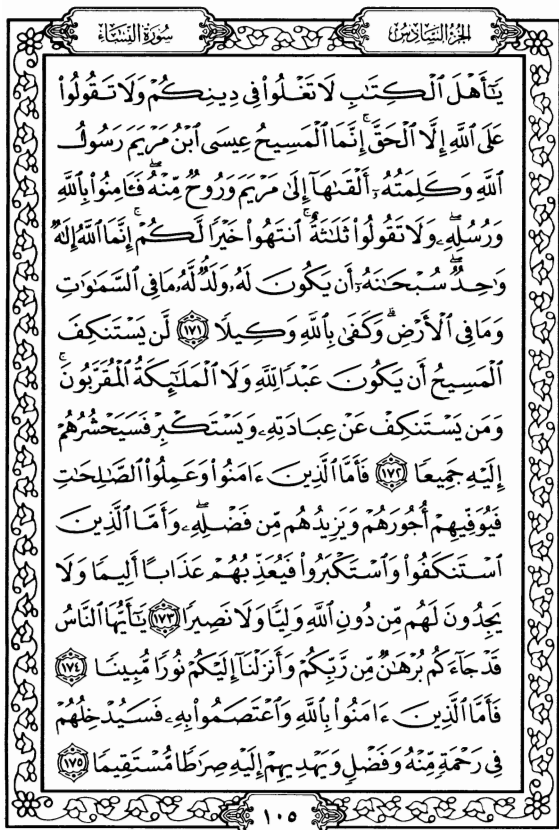 الجزء السادس
سورة النساء
يَٰٓأَهۡلَ ٱلۡكِتَٰبِ لَا تَغۡلُوا۟ فِي دِينِكُمۡ وَلَا تَقُولُوا۟
عَلَى ٱللَّهِ إِلَّا ٱلۡحَقَّۚ إِنَّمَا ٱلۡمَسِيحُ عِيسَى ٱبۡنُ مَرۡيَمَ رَسُولُ
ٱللَّهِ وَكَلِمَتُهُۥٓ أَلۡقَىٰهَآ إِلَىٰ مَرۡيَمَ وَرُوحٌ مِّنۡهُۖ فَـَٔامِنُوا۟ بِٱللَّهِ
وَرُسُلِهِۦۖ وَلَا تَقُولُوا۟ ثَلَٰثَةٌۚ ٱنتَهُوا۟ خَيۡرًا لَّكُمۡۚ إِنَّمَا ٱللَّهُ إِلَٰهٌ
وَٰحِدٌۖ سُبۡحَٰنَهُۥٓ أَن يَكُونَ لَهُۥ وَلَدٌۘ لَّهُۥ مَا فِي ٱلسَّمَٰوَٰتِ
وَمَا فِي ٱلۡأَرۡضِۗ وَكَفَىٰ بِٱللَّهِ وَكِيلًا ١٧١ لَّن يَسۡتَنكِفَ
ٱلۡمَسِيحُ أَن يَكُونَ عَبۡدًا لِّلَّهِ وَلَا ٱلۡمَلَٰٓئِكَةُ ٱلۡمُقَرَّبُونَۚ
وَمَن يَسۡتَنكِفۡ عَنۡ عِبَادَتِهِۦ وَيَسۡتَكۡبِرۡ فَسَيَحۡشُرُهُمۡ
إِلَيۡهِ جَمِيعًا ١٧٢ فَأَمَّا ٱلَّذِينَ ءَامَنُوا۟ وَعَمِلُوا۟ ٱلصَّٰلِحَٰتِ
فَيُوَفِّيهِمۡ أُجُورَهُمۡ وَيَزِيدُهُم مِّن فَضۡلِهِۦۖ وَأَمَّا ٱلَّذِينَ
ٱسۡتَنكَفُوا۟ وَٱسۡتَكۡبَرُوا۟ فَيُعَذِّبُهُمۡ عَذَابًا أَلِيمًا وَلَا
يَجِدُونَ لَهُم مِّن دُونِ ٱللَّهِ وَلِيًّا وَلَا نَصِيرًا ١٧٣ يَٰٓأَيُّهَا ٱلنَّاسُ
قَدۡ جَآءَكُم بُرۡهَٰنٌ مِّن رَّبِّكُمۡ وَأَنزَلۡنَآ إِلَيۡكُمۡ نُورًا مُّبِينًا ١٧٤
فَأَمَّا ٱلَّذِينَ ءَامَنُوا۟ بِٱللَّهِ وَٱعۡتَصَمُوا۟ بِهِۦ فَسَيُدۡخِلُهُمۡ
فِي رَحۡمَةٍ مِّنۡهُ وَفَضۡلٍ وَيَهۡدِيهِمۡ إِلَيۡهِ صِرَٰطًا مُّسۡتَقِيمًا ١٧٥
١٠٥